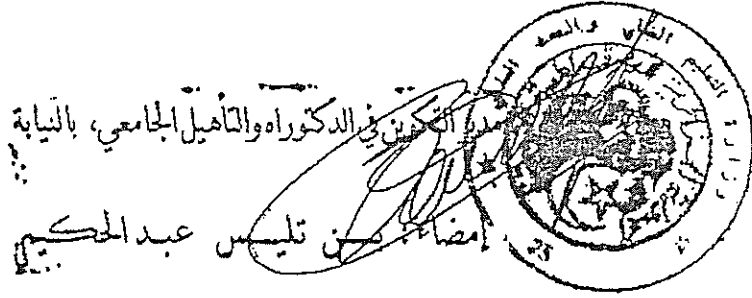 مدير التكوين في الدكتوراه والتأهيل الجامعي، بالنيابة
إمضاء: بن تليس عبد الحكيم
وزارة التعليم العالي والبحث العلمي
25